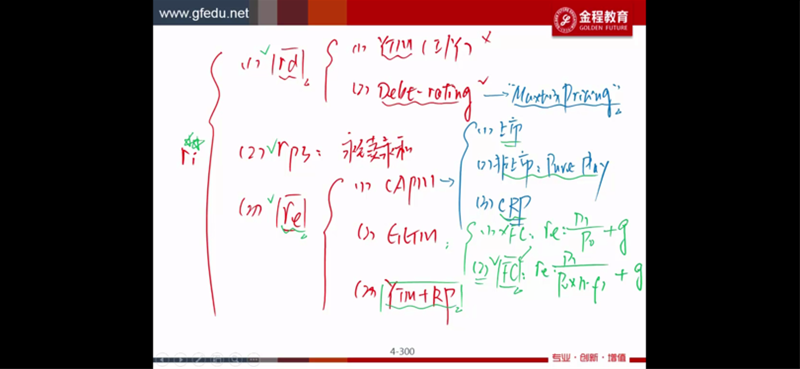 www.gfedu.net
金程教育
GOLDEN FUTURE
(1) rd
(1) YTM (I/Y)
(2) Debt-rating → "Matrix Pricing"
ri
(2) rps: 永续求和
(3) re
(1) CAPM →
(1) 上市
(2) 非上市: Pure Play
(3) CRP
(2) GGM:
(1) FC: re:
+ g
(2) FC: re:
+ g
(3) YTM+RP
4-300
专业·创新·增值